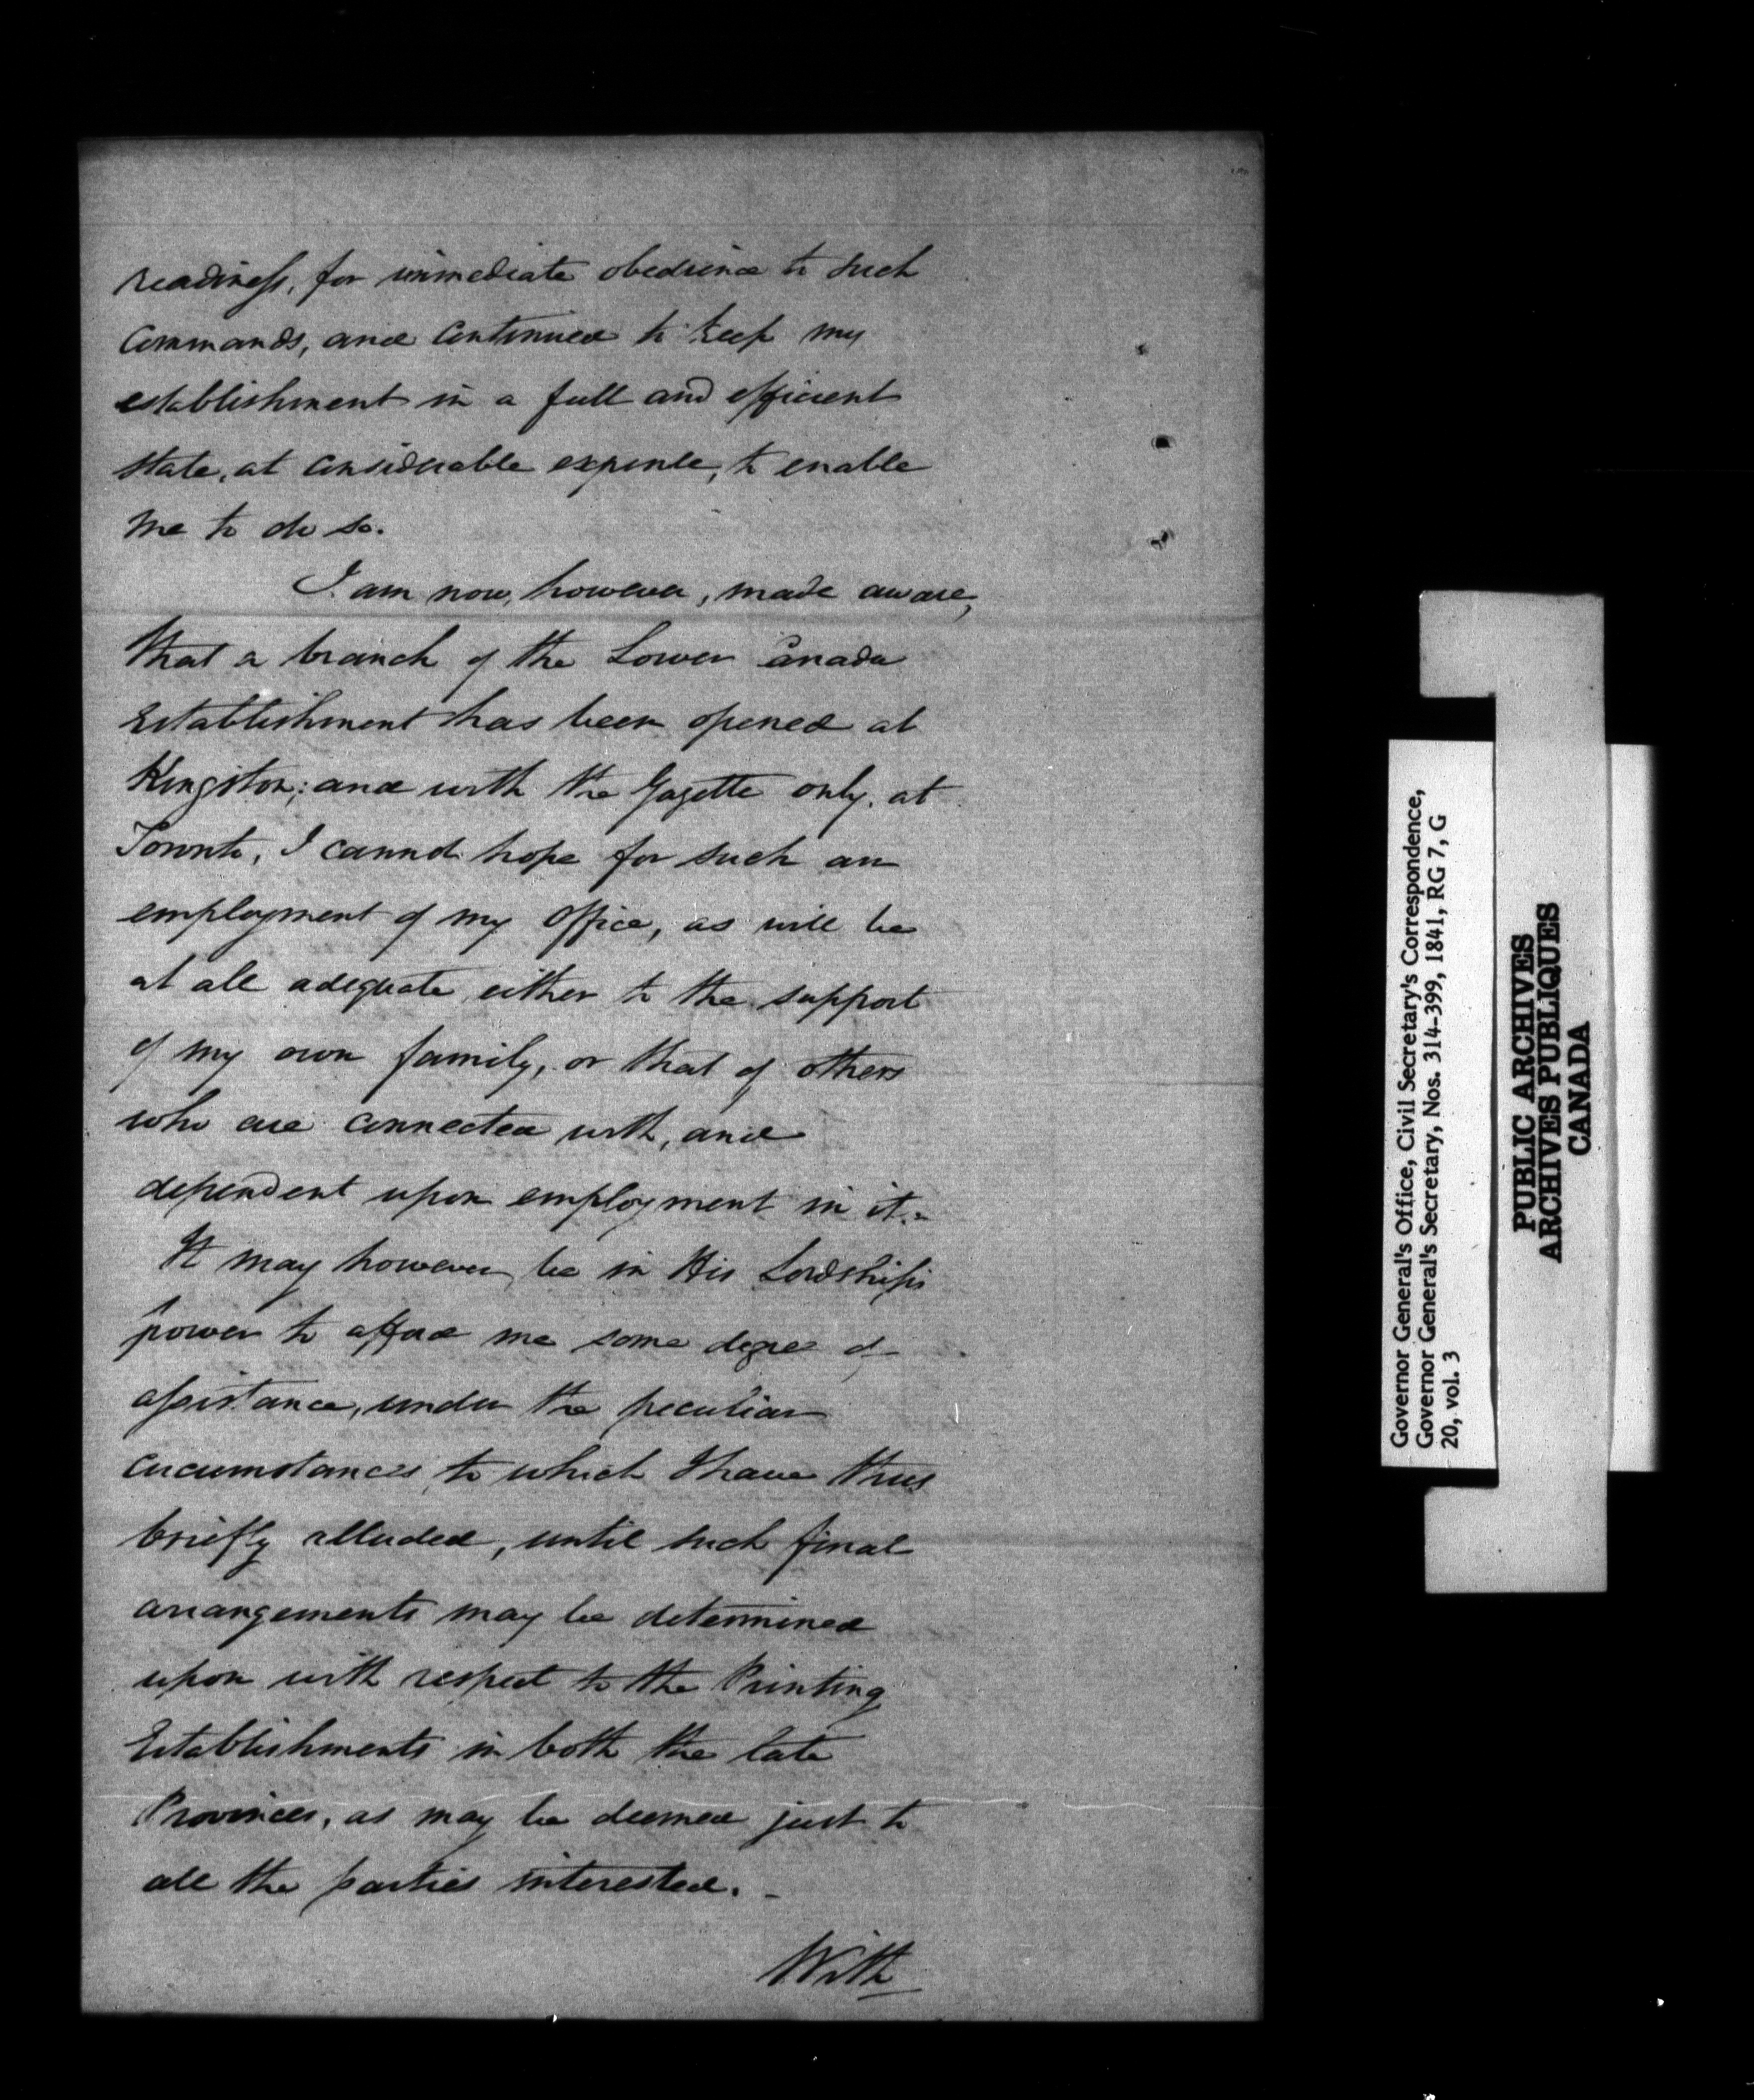 readiness, for immediate obedience to such
Commands, and continued to keep my
establishment in a full and efficient
state, at considerable expense, to enable
me to do so.
I am now, however, made aware,
that a branch of the Lower Canada
Establishment has been opened at
Kingston; and with the Gazette only, at
Toronto, I cannot hope for such an
employment of my Office, as will be
at all adequate either to the support
of my own family, or that of others
who are connected with, and
dependent upon employment in it.-
It may however, be in His Lordship's
power to afford me some degree of
assistance, under the peculiar
circumstances to which I have thus
briefly alluded, until such final
arrangements may be determined
upon with respect to the Printing
Establishments in both the late
Provinces, as may be deemed just to
all the parties interested. -
With
Governor General's Office, Civil Secretary's Correspondence,
Governor General's Secretary, Nos. 314-399, 1841, RG 7, G
20, vol. 3
PUBLIC ARCHIVES
ARCHIVES PUBLIQUES
CANADA